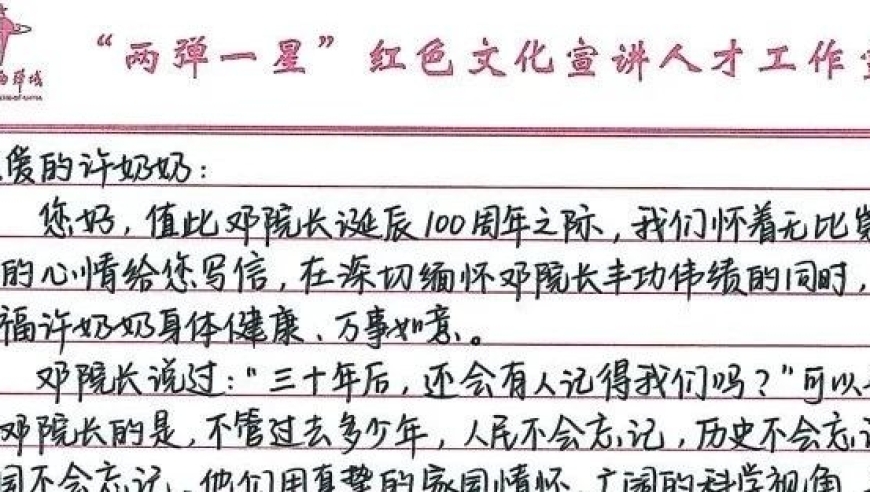 “两弹一星”红色文化宣讲人才工作
爱的许奶奶：
您好，值此邓院长诞辰100周年之际，我们怀着无比
的心情给您写信，在深切缅怀邓院长丰功伟绩的同时，
福许奶奶身体健康、万事如意。
邓院长说过：“三十年后，还会有人记得我们吗？”可以
邓院长的是，不管过去多少年，人民不会忘记，历史不会忘
国不会忘记。他们用真挚的家国情怀、广阔的科学视角